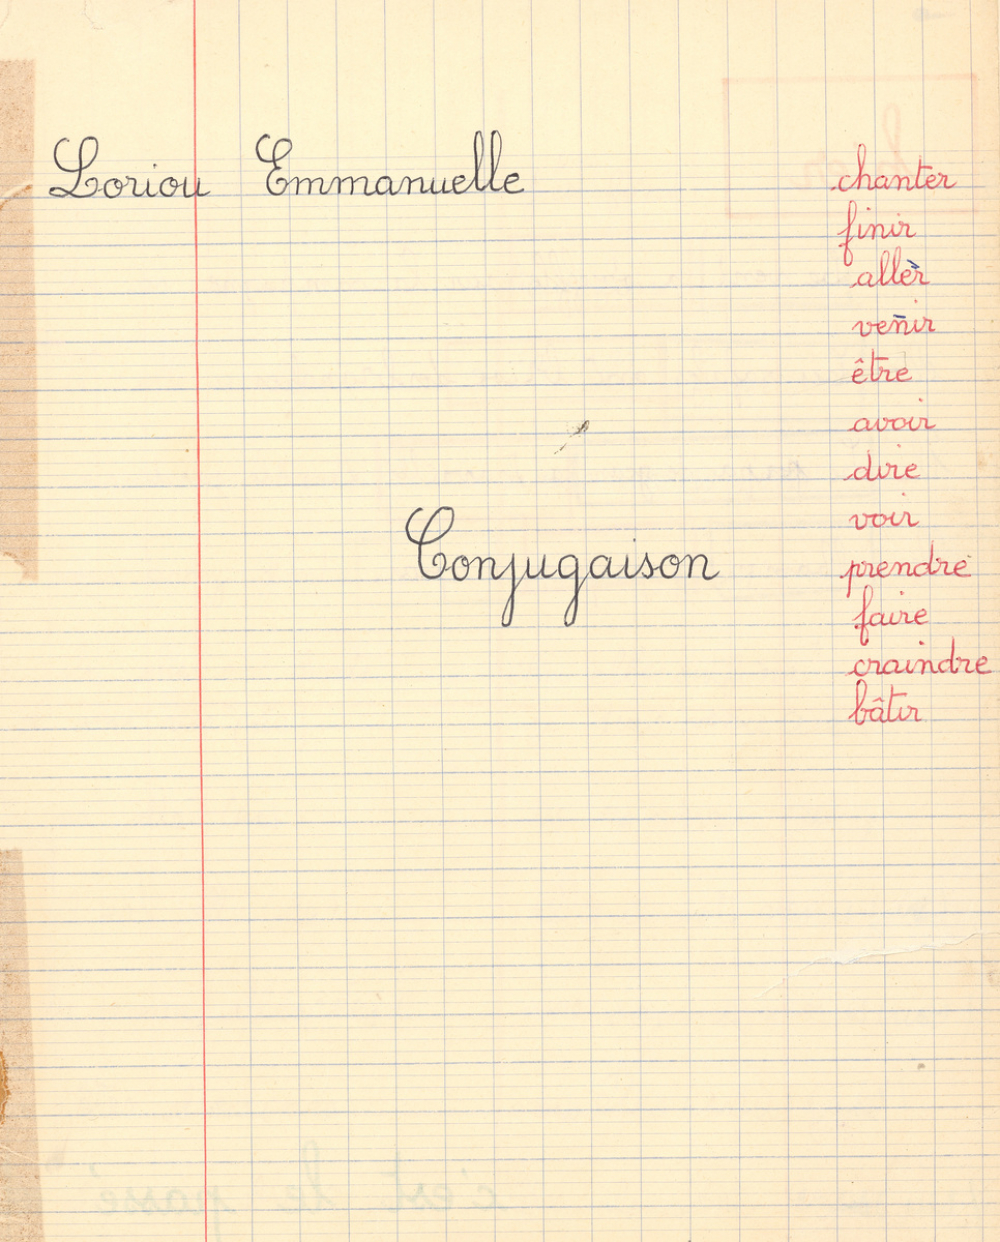 Loriou Emmanuelle
chanter
finir
aller
venir
être
avoir
dire
voir
Conjugaison
prendre
faire
craindre
bâtir
c'est le passé